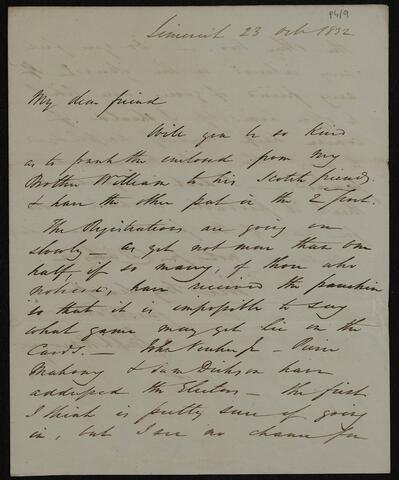 P4/9
Limerick 23 Oct 1832
My dear friend
Will you be so kind
as to frank the enclosed from my
Brother William to his Scotch friends
& have the other put in the 2d post.
The Registrations are going on
slowly - as yet not more than one
half, if so many, of those who
noticed, have received the franchise
so that it is impossible to say
what game may yet lie in the
Cards. - John Vereker Jr - Pierce
Mahony & Sam Dickson have
addressed the Electors - the first
I think is pretty sure of going
in, but I see no chance for